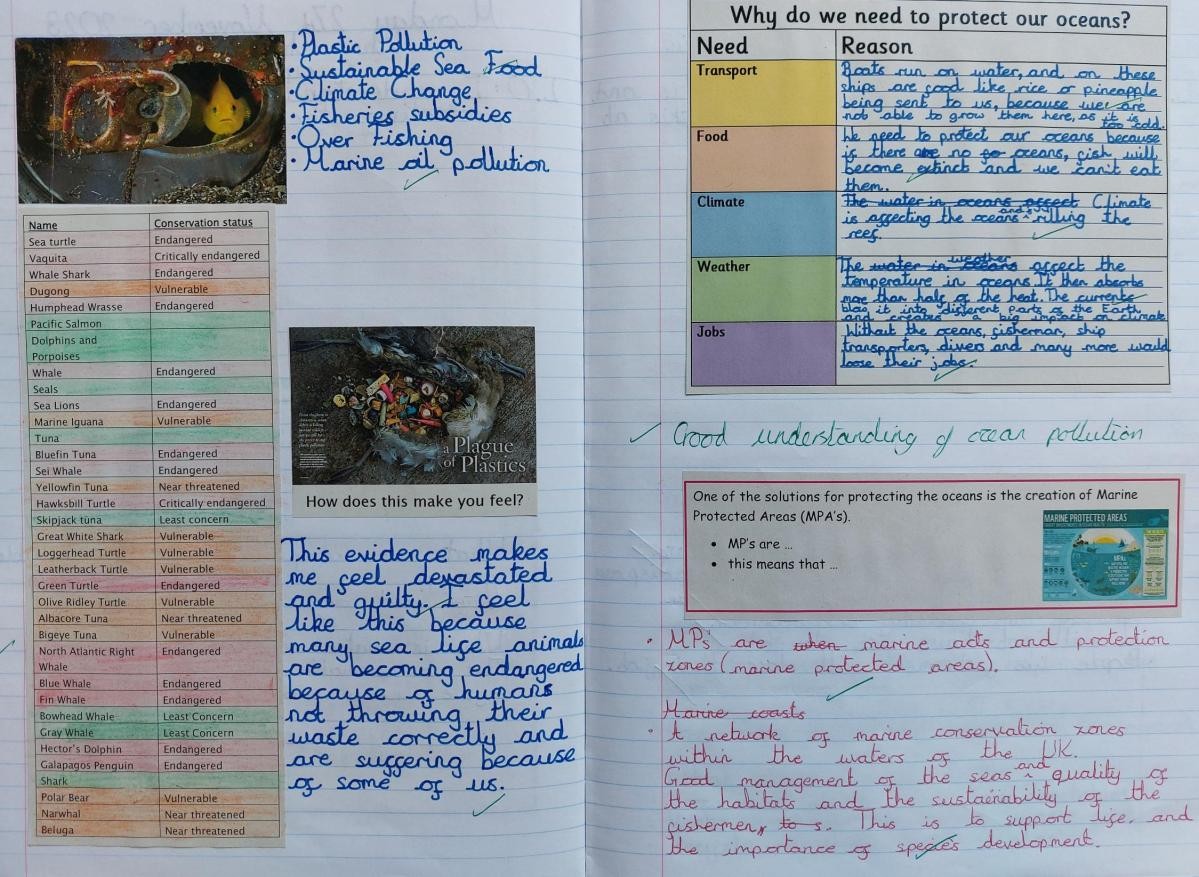 • Plastic Pollution
• Sustainable Sea Food
• Climate Change
• Fisheries subsidies
• Over Fishing
• Marine oil pollution
Name Conservation status
Sea turtle Endangered
Vaquita Critically endangered
Whale Shark Endangered
Dugong Vulnerable
Humphead Wrasse Endangered
Pacific Salmon
Dolphins and
Porpoises
Whale Endangered
Seals
Sea Lions Endangered
Marine Iguana Vulnerable
Tuna
Bluefin Tuna Endangered
Sei Whale Endangered
Yellowfin Tuna Near threatened
Hawksbill Turtle Critically endangered
Skipjack tuna Least concern
Great White Shark Vulnerable
Loggerhead Turtle Vulnerable
Leatherback Turtle Vulnerable
Green Turtle Endangered
Olive Ridley Turtle Vulnerable
Albacore Tuna Near threatened
Bigeye Tuna Vulnerable
North Atlantic Right Endangered
Whale
Blue Whale Endangered
Fin Whale Endangered
Bowhead Whale Least Concern
Gray Whale Least Concern
Hector's Dolphin Endangered
Galapagos Penguin Endangered
Shark
Polar Bear Vulnerable
Narwhal Near threatened
Beluga Near threatened
a Plague
of Plastics
How does this make you feel?
This evidence makes
me feel devastated
and guilty. I feel
like this because
many sea life animals
are becoming endangered
because of humans
not throwing their
waste correctly and
are suffering because
of some of us.
Why do we need to protect our oceans?
Need Reason
Transport
Boats run on water, and on these
ships are food like rice or pineapple
being sent to us, because we are
not able to grow them here, as it is
too cold.
Food
We need to protect our oceans because
is there are no so oceans, fish will
become extinct and we can't eat
them.
Climate
The water in oceans affect Climate
is affecting the oceans and is killing the
reef.
Weather
The water in oceans weather affect the
temperature in oceans. It then absorbs
more than half of the heat. The currents
blow it into different parts of the Earth
and creates a big impact on climate
Jobs
Without the oceans, fisherman, ship
transporters, divers and many more would
loose their jobs.
Good understanding of ocean pollution
One of the solutions for protecting the oceans is the creation of Marine
Protected Areas (MPA's).
• MP's are ...
• this means that ...
MARINE PROTECTED AREAS
• MPs' are when marine acts and protection
zones (marine protected areas).
Marine coasts
• A network of marine conservation zones
within the waters of the UK.
Good management of the seas and quality of
the habitats and the sustainability of the
fishermen, to s. This is to support life, and
the importance of species development.